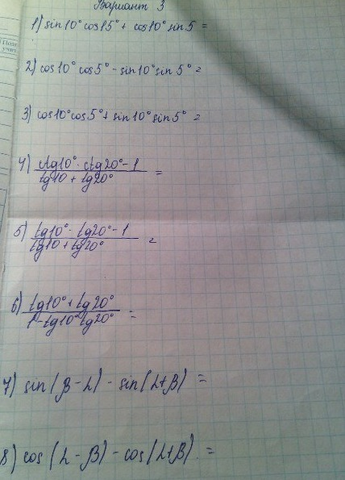 Вариант 3
1) sin10° cos15° + cos10° sin5 =
2) cos10° cos5° - sin10° sin5° =
3) cos10° cos5° + sin10° sin5° =
4) ctg10° · ctg20° - 1
tg10 + tg20° =
5) tg10° · tg20° - 1
tg10 + tg20° =
6) tg10° + tg20°
1 - tg10° tg20° =
7) sin(β - α) - sin(α + β) =
8) cos(α - β) - cos(α + β) =